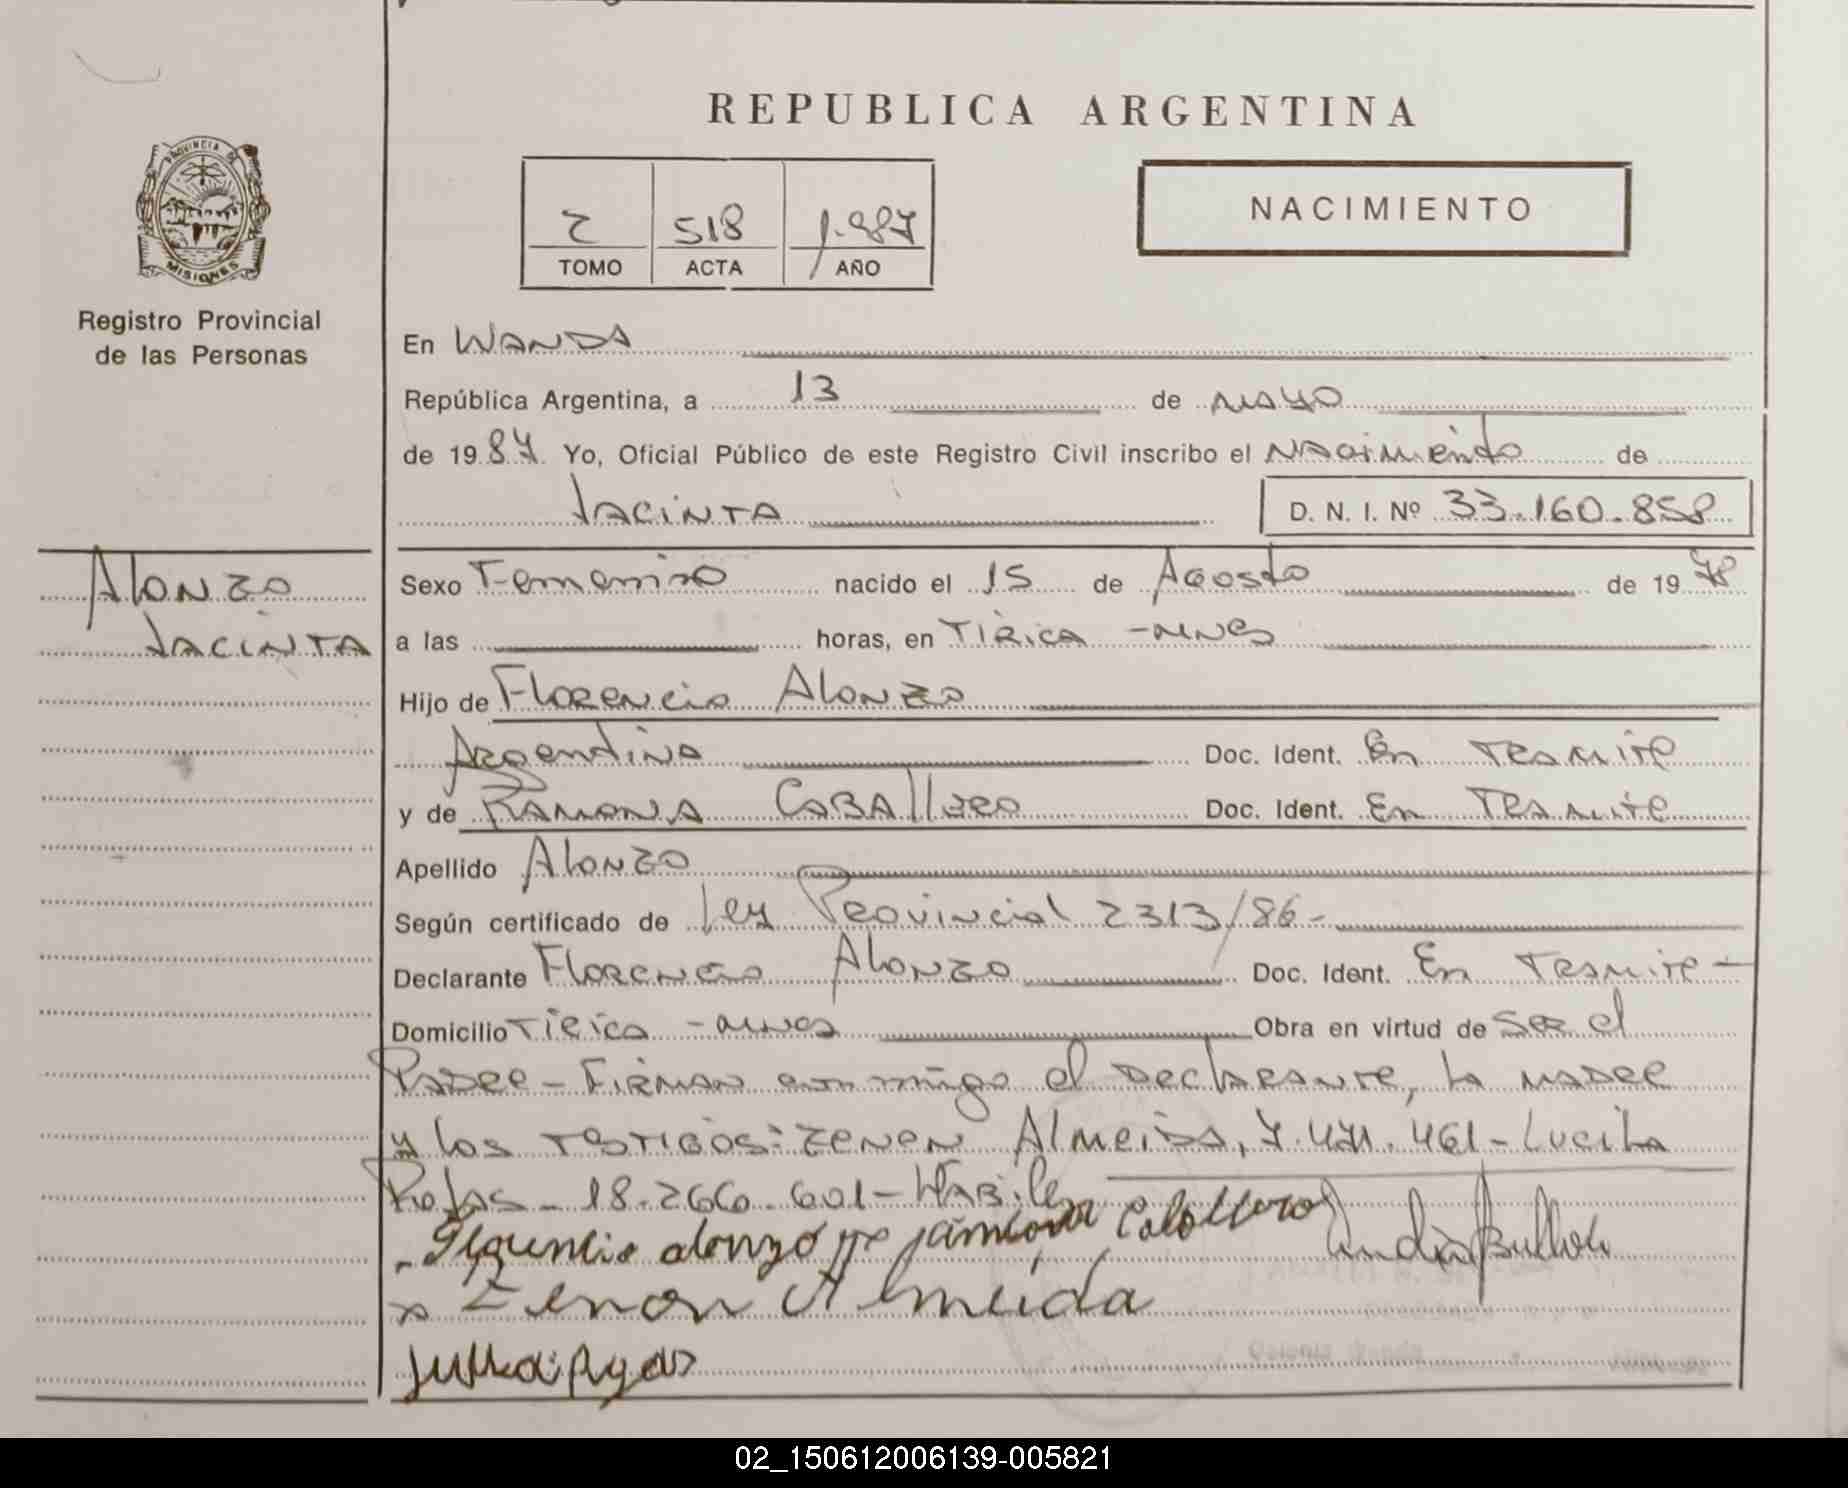 REPUBLICA ARGENTINA
PROVINCIA DE
MISIONES
Registro Provincial
de las Personas
2 518 1.987
TOMO ACTA AÑO
NACIMIENTO
En WANDA
República Argentina, a 13 de mayo
de 1987 Yo, Oficial Público de este Registro Civil inscribo el Nacimiento de
JACINTA D. N. I. Nº 33.160.858
Alonzo
JACINTA
Sexo Femenino nacido el 15 de Agosto de 1978
a las horas, en TIRICA - Mnes
Hijo de Florencio Alonzo
Argentina Doc. Ident. En Tramite
y de RAMONA CABAllero Doc. Ident. En Tramite
Apellido Alonzo
Según certificado de Ley Provincial 2313/86-
Declarante Florencio Alonzo Doc. Ident. En Tramite -
Domicilio Tirica - Mnes Obra en virtud de Ser el
Padre - Firman conmigo el Declarante, la madre
y los testigos: Zenen Almeida, 7.471.461 - Lucila
Rojas - 18.266.601 - Habiles
alonzo
Zenon Almeida
02_150612006139-005821